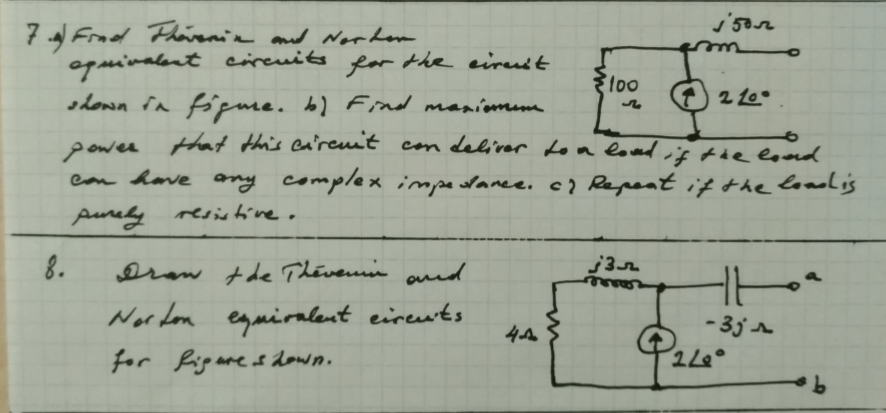 7. a) Find Thévenin and Norton
equivalent circuits for the circuit
shown in figure. b) Find maximum
power that this circuit can deliver to a load if the load
can have any complex impedance. c) Repeat if the load is
purely resistive.
j50Ω
100
Ω
2∠0°
8. Draw the Thévenin and
Norton equivalent circuits
for figure shown.
j3Ω
a
-3jΩ
4Ω
2∠0°
b